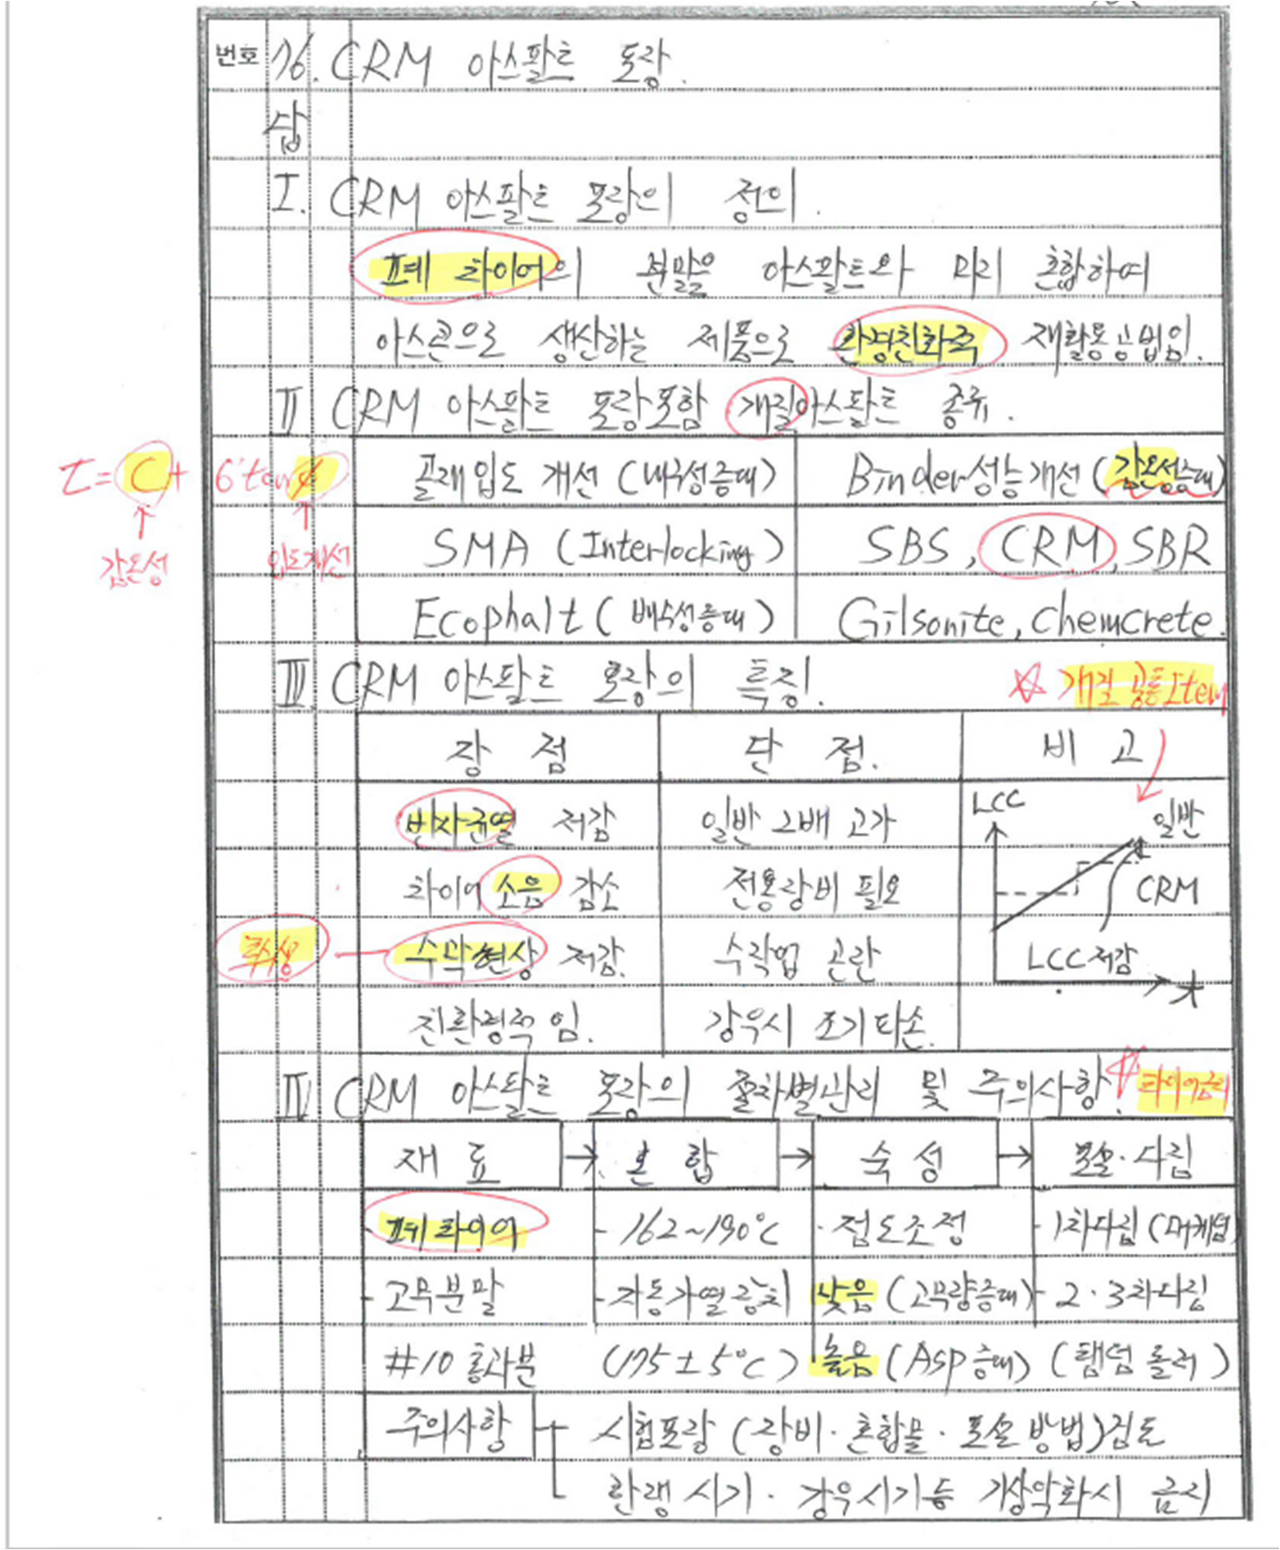 번호 76. CRM 아스팔트 포장.
답
I. CRM 아스팔트 포장의 정의.
폐 타이어의 분말을 아스팔트와 미리 혼합하여
아스콘으로 생산하는 제품으로 환경친화적 재활용공법임.
II CRM 아스팔트 포장포함 개질아스팔트 종류.
τ = C + σ'tanφ 골재입도 개선 (내구성증대) Binder성능개선 (감온성증대)
감온성 입도개선 SMA (Interlocking) SBS, CRM, SBR
Ecophalt (배수성증대) Gilsonite, Chemcrete.
III. CRM 아스팔트 포장의 특징. ☆ 개질 공통 Item
장 점 단 점. 비 고
반사균열 저감 일반 2배 고가 LCC 일반
타이어 소음 감소 전용장비 필요 CRM
수막현상 저감. 수작업 곤란 LCC저감
친환경적 임. 강우시 조기파손. t
IV CRM 아스팔트 포장의 절차별관리 및 주의사항. ☆
재 료 → 혼 합 → 숙 성 → 포설·다짐
- 폐타이어 - 162~190℃ · 점도조정 - 1차다짐 (머캐덤)
- 고무분말 - 자동가열장치 낮음 (고무량증대) - 2·3차다짐
#10 통과분 (175±5℃) 높음 (Asp증대) (탬덤 롤러)
주의사항 시험포장 (장비·혼합물·포설방법)검토
한랭시기·강우시기등 기상악화시 금지